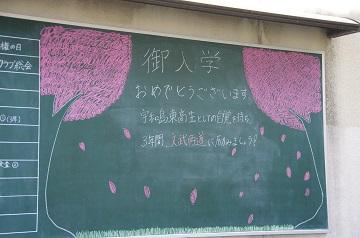 権の日
クラブ総会
御入学
おめでとうございます
宇和島東高生としての自覚を持ち
3年間、文武両道に励みましょう!